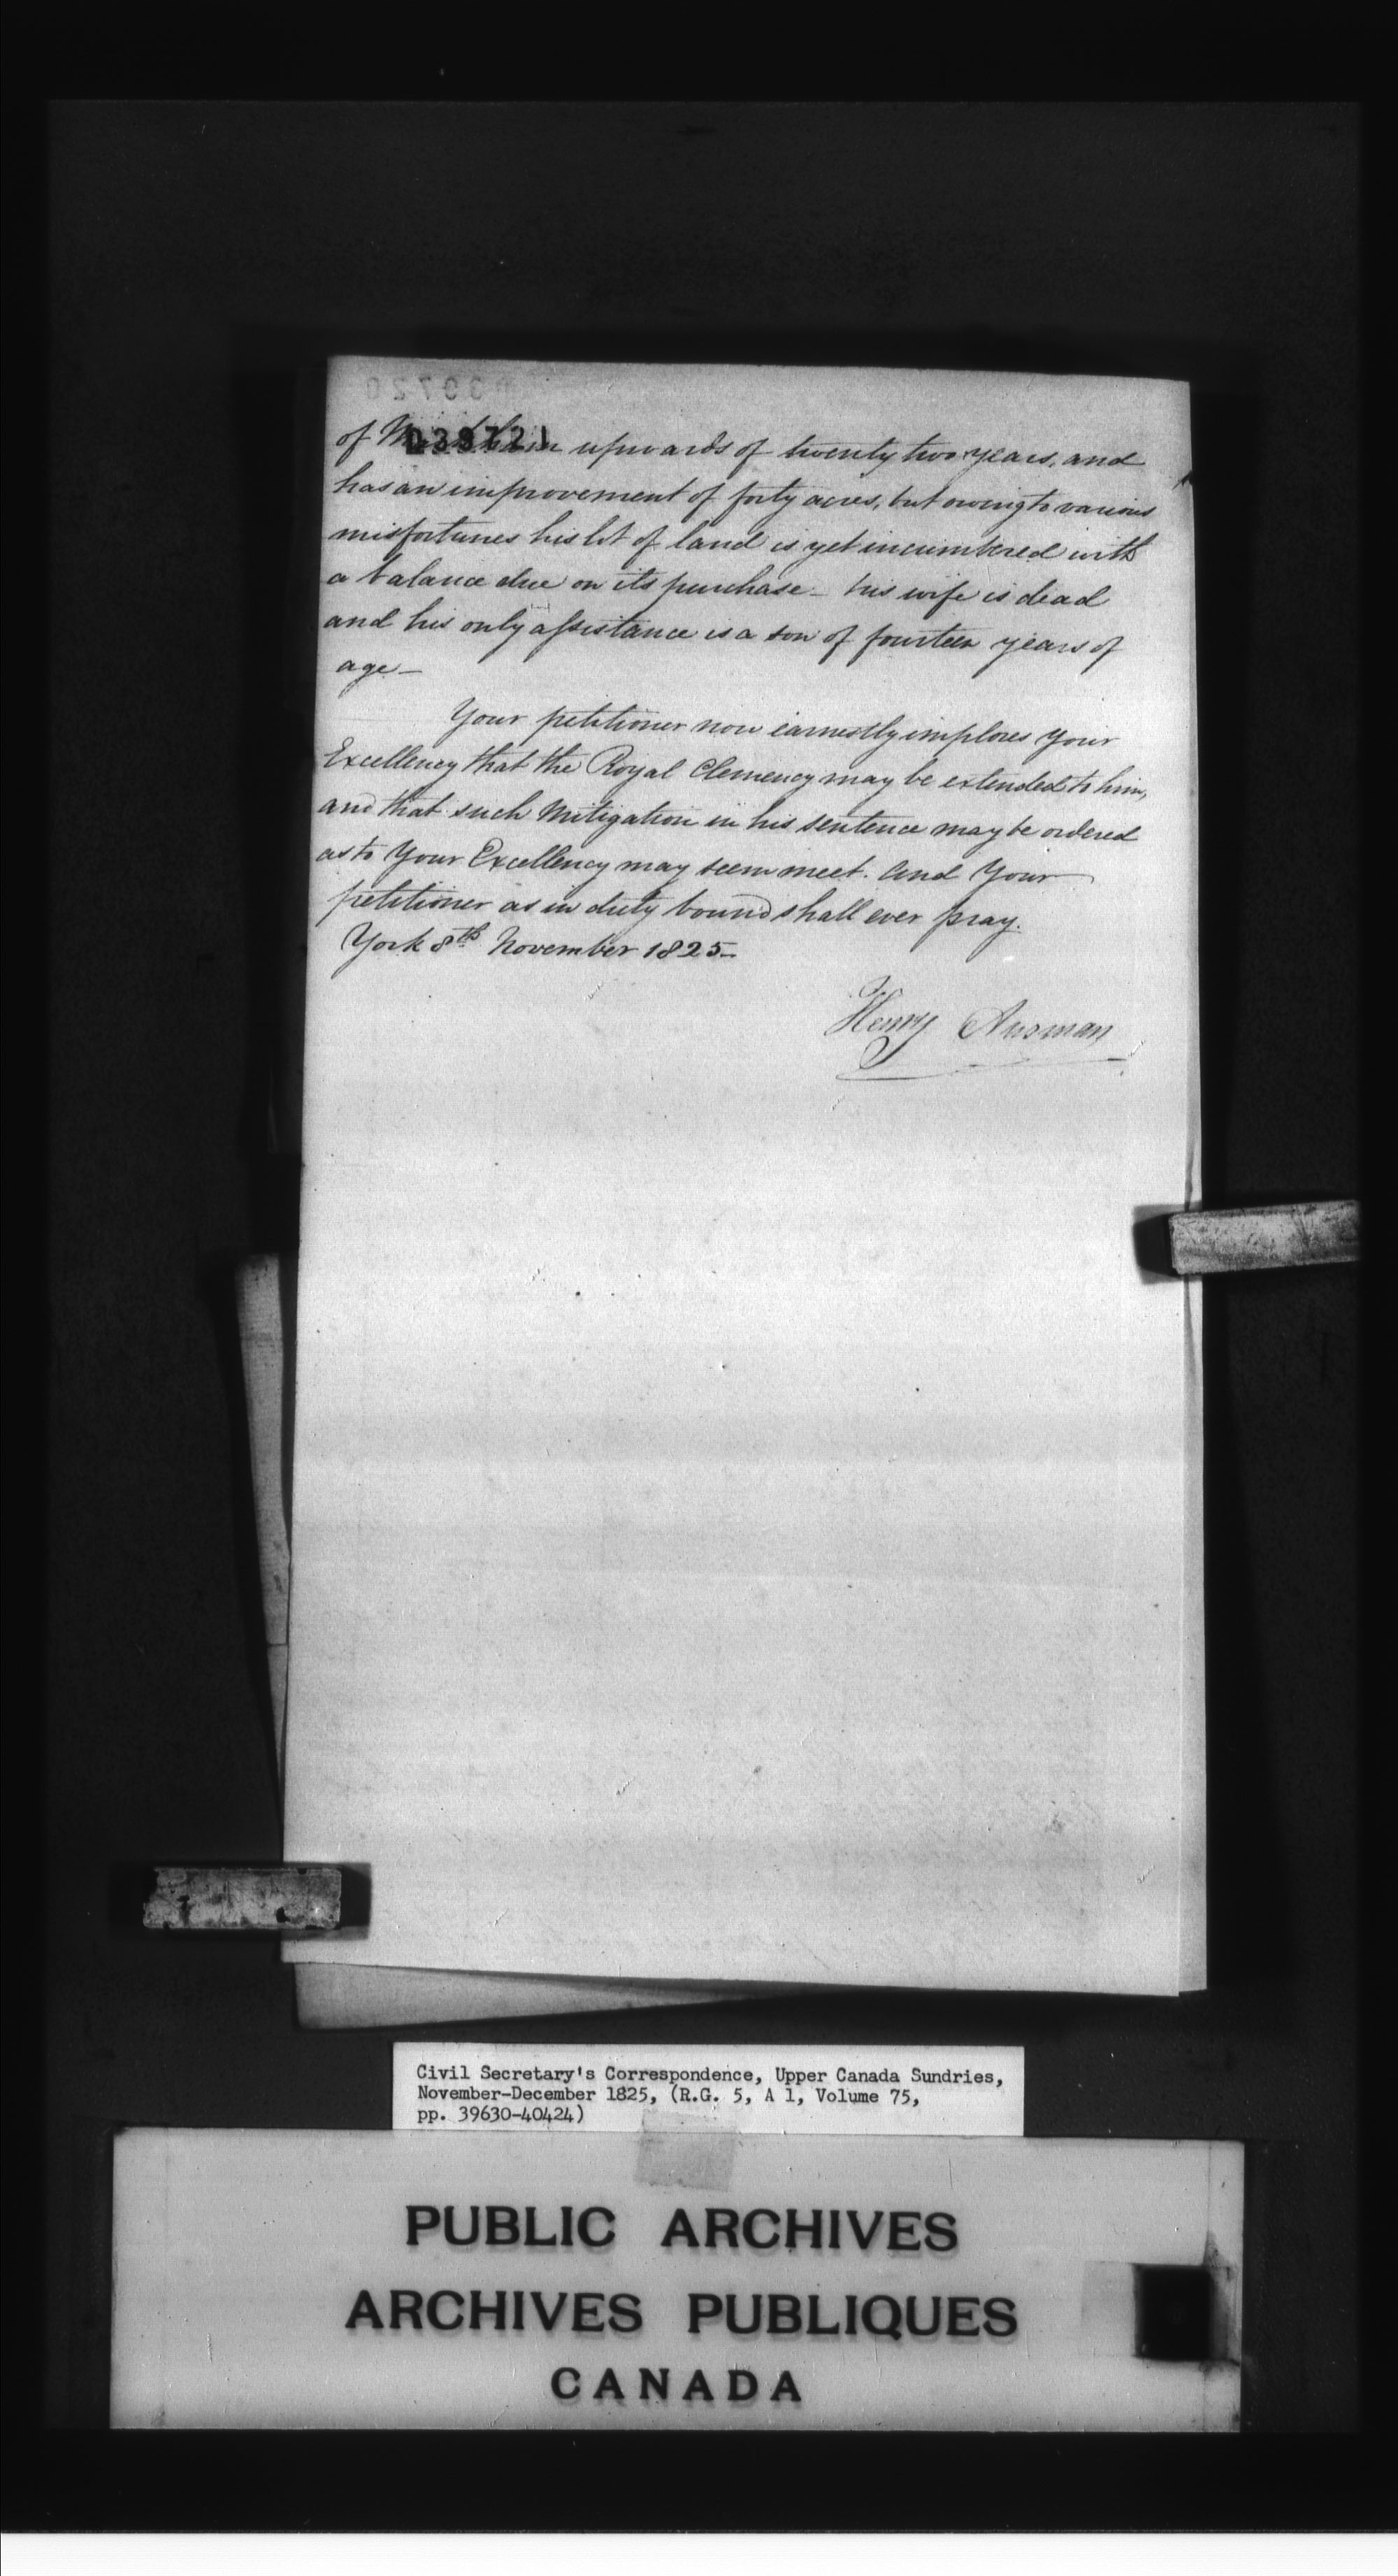 039720
039721
of Markham upwards of twenty two years, and
has an improvement of forty acres, but owing to various
misfortunes his lot of land is yet incumbered with
a balance due on its purchase – his wife is dead
and his only assistance is a son of fourteen years of
age –
Your petitioner now earnestly implores Your
Excellency that the Royal Clemency may be extended to him,
and that such Mitigation in his sentence may be ordered
as to Your Excellency may seem meet. And Your
petitioner as in duty bound shall ever pray.
York 8th November 1825 –
Henry Ausman
Civil Secretary's Correspondence, Upper Canada Sundries,
November-December 1825, (R.G. 5, A 1, Volume 75,
pp. 39630-40424)
PUBLIC ARCHIVES
ARCHIVES PUBLIQUES
CANADA